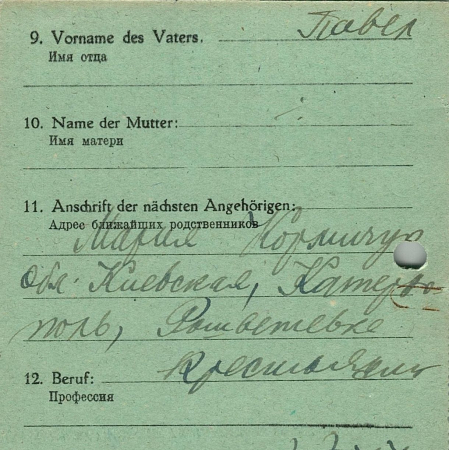 9. Vorname des Vaters. Павел
Имя отца
10. Name der Mutter:
Имя матери
11. Anschrift der nächsten Angehörigen:
Адрес ближайших родственников
Мария
Обл. Киевская, Катери
поль,
12. Beruf: Крестьянин
Профессия